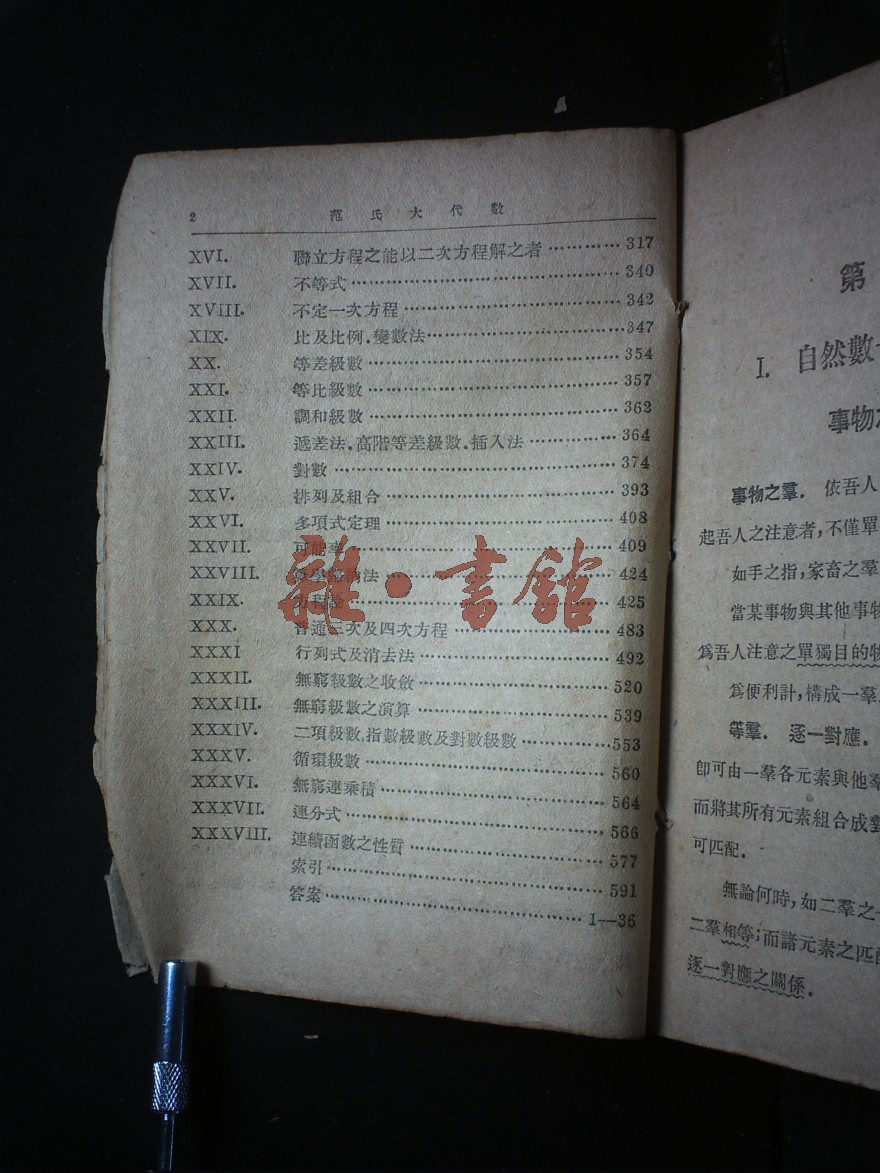 2 范氏大代數
XVI. 聯立方程之能以二次方程解之者 ············ 317
XVII. 不等式 ············ 340
XVIII. 不定一次方程 ············ 342
XIX. 比及比例.變數法 ············ 347
XX. 等差級數 ············ 354
XXI. 等比級數 ············ 357
XXII. 調和級數 ············ 362
XXIII. 遞差法.高階等差級數.插入法 ············ 364
XXIV. 對數 ············ 374
XXV. 排列及組合 ············ 393
XXVI. 多項式定理 ············ 408
XXVII. 可能率 ············ 409
XXVIII. 學 法 ············ 424
XXIX. 方程論 ············ 425
XXX. 普通三次及四次方程 ············ 483
XXXI 行列式及消去法 ············ 492
XXXII. 無窮級數之收斂 ············ 520
XXXIII. 無窮級數之演算 ············ 539
XXXIV. 二項級數,指數級數及對數級數 ············ 553
XXXV. 循環級數 ············ 560
XXXVI. 無窮連乘積 ············ 564
XXXVII. 連分式 ············ 566
XXXVIII. 連續函數之性質 ············ 577
索引 ············ 591
答案 ············ 1—36
雜·書館
第
I. 自然數
事物
事物之羣. 依吾人
起吾人之注意者,不僅單
如手之指,家畜之羣
當某事物與其他事物
爲吾人注意之單獨目的物
爲便利計,構成一羣
等羣. 逐一對應.
卽可由一羣各元素與他羣
而將其所有元素組合成對
可匹配.
無論何時,如二羣之
二羣相等;而諸元素之匹配
逐一對應之關係.